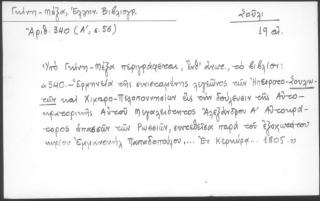 Γκίνη-Μέξα, Ἑλλην. Βιβλιογρ.
Σοῦλι
Ἀριθ. 340 (Α', σ. 56)
19 αἰ.
Ὑπὸ Γκίνη-Μέξα περιγράφεται, ἔνθ' ἄνωτ., τὸ βιβλίον:
«340.- Ἑρμηνεία τῆς ἐνισταμένης λεγεῶνος τῶν Ἠπειρωτο-Σουλιω-
τῶν καὶ Χιμαρο-Πελοποννησίων εἰς τὴν δούλευσιν τῆς Αὐτο-
κρατορικῆς Αὐτοῦ Μεγαλειότητος Ἀλεξάνδρου Α' Αὐτοκρά-
τορος ἁπασῶν τῶν Ρωσσιῶν, συντεθεῖσα παρὰ τοῦ ἐξοχωτάτου
κυρίου Ἐμμανουὴλ Παπαδοπούλου,... Ἐν Κερκύρᾳ... 1805.»